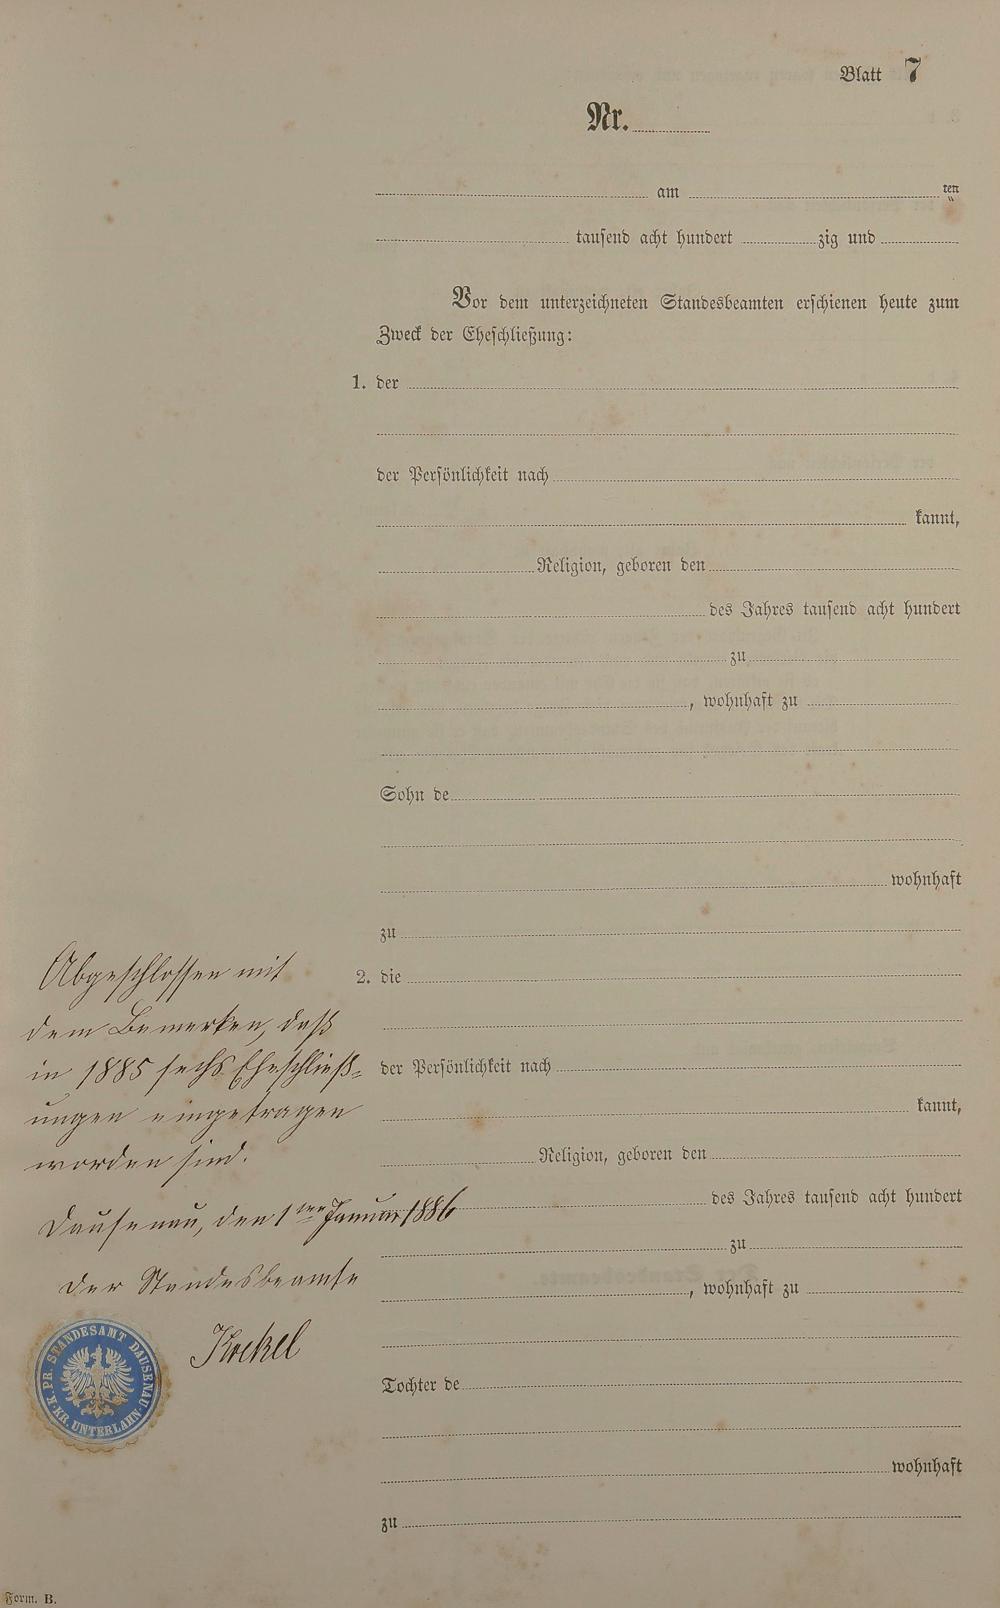 Blatt 7
Nr.
am ten
tausend acht hundert zig und
Vor dem unterzeichneten Standesbeamten erschienen heute zum
Zweck der Eheschließung:
1. der
der Persönlichkeit nach
kannt,
Religion, geboren den
des Jahres tausend acht hundert
zu
, wohnhaft zu
Sohn de
wohnhaft
zu
2. die
der Persönlichkeit nach
kannt,
Religion, geboren den
des Jahres tausend acht hundert
zu
, wohnhaft zu
Tochter de
wohnhaft
zu
Abgeschlossen mit
dem Bemerken, daß
in 1885 sechs Eheschließ-
ungen eingetragen
worden sind.
Dausenau, den 1ten Januar 1886
Der Standesbeamte
K. PR. STANDESAMT DAUSENAU
KR. UNTERLAHN
Form. B.